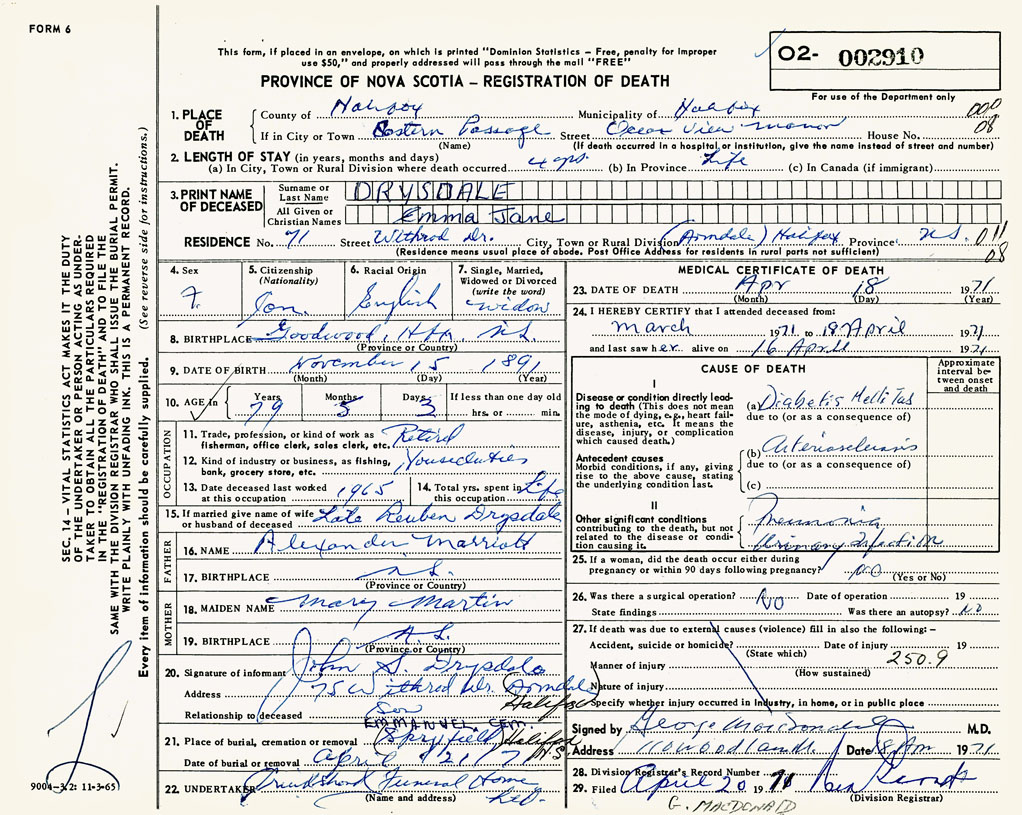 FORM 6
This form, if placed in an envelope, on which is printed "Dominion Statistics – Free, penalty for improper
use $50," and properly addressed will pass through the mail "FREE"
O2- 002910
PROVINCE OF NOVA SCOTIA – REGISTRATION OF DEATH
For use of the Department only
1. PLACE OF DEATH
County of Halifax Municipality of Halifax
If in City or Town Eastern Passage Street Ocean View Manor House No.
08
(Name) (If death occurred in a hospital or institution, give the name instead of street and number)
2. LENGTH OF STAY (in years, months and days)
(a) In City, Town or Rural Division where death occurred 4 yrs. (b) In Province Life (c) In Canada (if immigrant)
3. PRINT NAME OF DECEASED
Surname or Last Name DRYSDALE
All Given or Christian Names Emma Jane
RESIDENCE No. 71 Street Withrod Dr. City, Town or Rural Division (Armdale) Halifax Province N.S. 011
(Residence means usual place of abode. Post Office Address for residents in rural parts not sufficient)
08
4. Sex F.
5. Citizenship (Nationality) Can.
6. Racial Origin English
7. Single, Married, Widowed or Divorced (write the word) Widow
8. BIRTHPLACE Goodwood, Hfx N.S.
(Province or Country)
9. DATE OF BIRTH November 15 1891
(Month) (Day) (Year)
10. AGE in Years 79 Months 5 Days 3 If less than one day old hrs. or min.
OCCUPATION
11. Trade, profession, or kind of work as fisherman, office clerk, sales clerk, etc. Retired
12. Kind of industry or business, as fishing, bank, grocery store, etc. Houseduties
13. Date deceased last worked at this occupation 1965
14. Total yrs. spent in this occupation Life
15. If married give name of wife or husband of deceased Late Reuben Drysdale
FATHER
16. NAME Alexander Marriott
17. BIRTHPLACE N.S.
(Province or Country)
MOTHER
18. MAIDEN NAME Mary Martin
19. BIRTHPLACE N.S.
(Province or Country)
20. Signature of informant John S. Drysdale
Address 75 Withrod Dr. Armdale Halifax
Relationship to deceased Son
EMMANUEL CEM.
21. Place of burial, cremation or removal (Spryfield) Halifax N.S.
Date of burial or removal April 21 71
22. UNDERTAKER Funeral Home Ltd.
(Name and address)
MEDICAL CERTIFICATE OF DEATH
23. DATE OF DEATH Apr 18 1971
(Month) (Day) (Year)
24. I HEREBY CERTIFY that I attended deceased from:
March 1971 to 18 April 1971
and last saw her alive on 16 April 1971
CAUSE OF DEATH
Approximate interval between onset and death
I
Disease or condition directly leading to death (This does not mean the mode of dying, e.g., heart failure, asthenia, etc. It means the disease, injury, or complication which caused death.)
(a) Diabetes Mellitus
due to (or as a consequence of)
Antecedent causes
Morbid conditions, if any, giving rise to the above cause, stating the underlying condition last.
(b) Arteriosclerosis
due to (or as a consequence of)
(c)
II
Other significant conditions contributing to the death, but not related to the disease or condition causing it.
Pneumonia
Urinary Infection
25. If a woman, did the death occur either during
pregnancy or within 90 days following pregnancy? no
(Yes or No)
26. Was there a surgical operation? No Date of operation 19
State findings Was there an autopsy? NO
27. If death was due to external causes (violence) fill in also the following: –
Accident, suicide or homicide? Date of injury 19
(State which) 250.9
Manner of injury
(How sustained)
Nature of injury
Specify whether injury occurred in industry, in home, or in public place
Signed by George M.D.
Address Date 18 Apr 1971
28. Division Registrar's Record Number
29. Filed April 20 1971
(Division Registrar)
G. MACDONALD
SEC. 14 – VITAL STATISTICS ACT MAKES IT THE DUTY
OF THE UNDERTAKER OR PERSON ACTING AS UNDER-
TAKER TO OBTAIN ALL THE PARTICULARS REQUIRED
IN THE "REGISTRATION OF DEATH" AND TO FILE THE
SAME WITH THE DIVISION REGISTRAR WHO SHALL ISSUE THE BURIAL PERMIT.
WRITE PLAINLY WITH UNFADING INK. THIS IS A PERMANENT RECORD.
Every item of information should be carefully supplied. (See reverse side for instructions.)
9004-3.2: 11-3-65